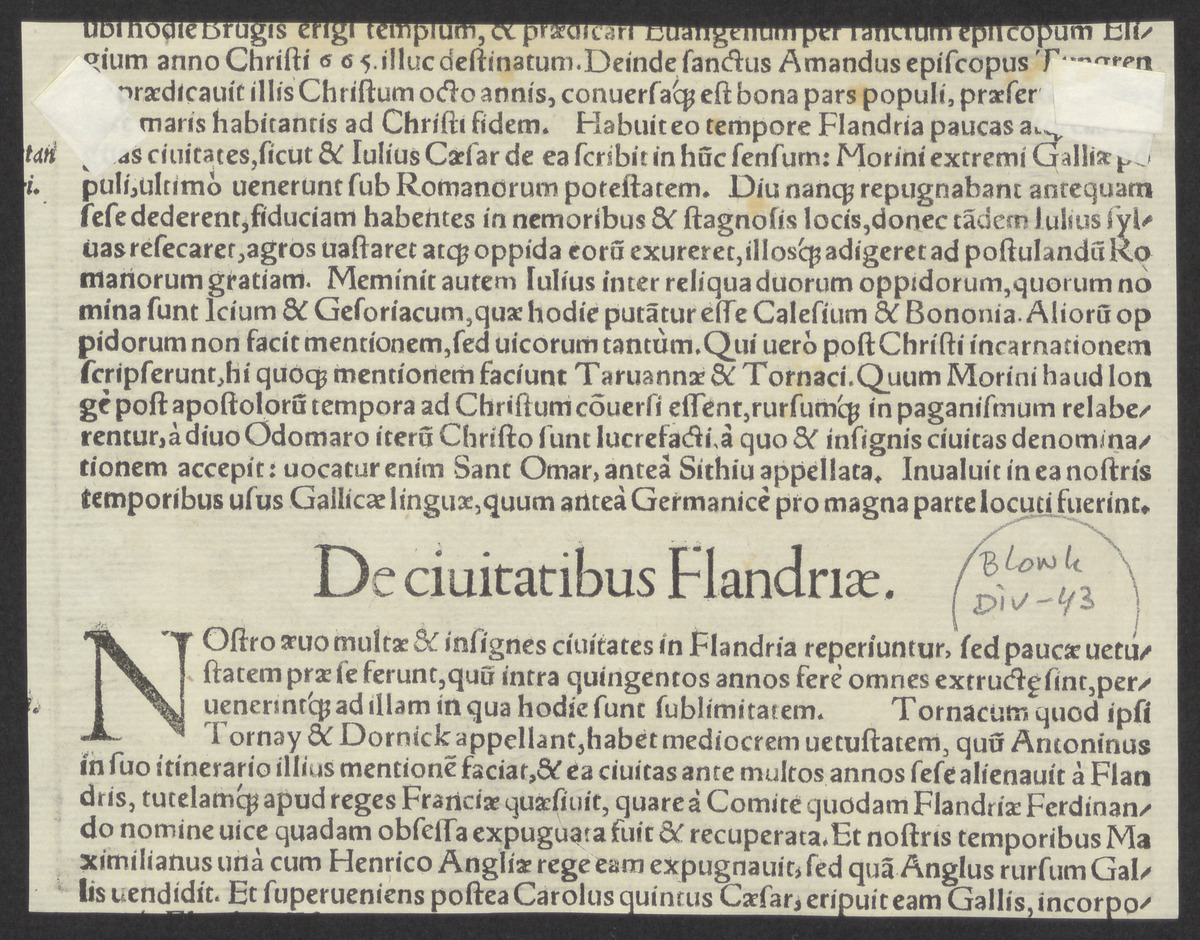 ubi hodie Brugis erigi templum, & prædicari Euangelium per sanctum episcopum Eli⸗
gium anno Christi 665. illuc destinatum. Deinde sanctus Amandus episcopus Tungren
prædicauit illis Christum octo annis, conuersaq́ꝫ est bona pars populi, præser
maris habitantis ad Christi fidem. Habuit eo tempore Flandria paucas
ciuitates, sicut & Iulius Cæsar de ea scribit in hūc sensum: Morini extremi Galliæ po
puli, ultimò uenerunt sub Romanorum potestatem. Diu nanqꝫ repugnabant antequam
sese dederent, fiduciam habentes in nemoribus & stagnosis locis, donec tādem Iulius syl⸗
uas resecaret, agros uastaret atqꝫ oppida eorū exureret, illosq́ꝫ adigeret ad postulandū Ro
manorum gratiam. Meminit autem Iulius inter reliqua duorum oppidorum, quorum no
mina sunt Icium & Gesoriacum, quæ hodie putātur esse Calesium & Bononia. Aliorū op
pidorum non facit mentionem, sed uicorum tantùm. Qui uerò post Christi incarnationem
scripserunt, hi quoqꝫ mentionem faciunt Taruannæ & Tornaci. Quum Morini haud lon
gè post apostolorū tempora ad Christum cōuersi essent, rursumq́ꝫ in paganismum relabe⸗
rentur, à diuo Odomaro iterū Christo sunt lucrefacti, à quo & insignis ciuitas denomina⸗
tionem accepit: uocatur enim Sant Omar, anteà Sithiu appellata. Inualuit in ea nostris
temporibus usus Gallicæ linguæ, quum anteà Germanicè pro magna parte locuti fuerint.
De ciuitatibus Flandriæ.
Blowk
Div-43
NOstro æuo multæ & insignes ciuitates in Flandria reperiuntur, sed paucæ uetu⸗
statem præ se ferunt, quū intra quingentos annos ferè omnes extructę sint, per⸗
uenerintq́ꝫ ad illam in qua hodie sunt sublimitatem. Tornacum quod ipsi
Tornay & Dornick appellant, habet mediocrem uetustatem, quū Antoninus
in suo itinerario illius mentionē faciat, & ea ciuitas ante multos annos sese alienauit à Flan
dris, tutelamq́ꝫ apud reges Franciæ quæsiuit, quare à Comite quodam Flandriæ Ferdinan⸗
do nomine uice quadam obsessa expuguata fuit & recuperata. Et nostris temporibus Ma
ximilianus unà cum Henrico Angliæ rege eam expugnauit, sed quā Anglus rursum Gal⸗
lis uendidit. Et superueniens postea Carolus quintus Cæsar, eripuit eam Gallis, incorpo⸗